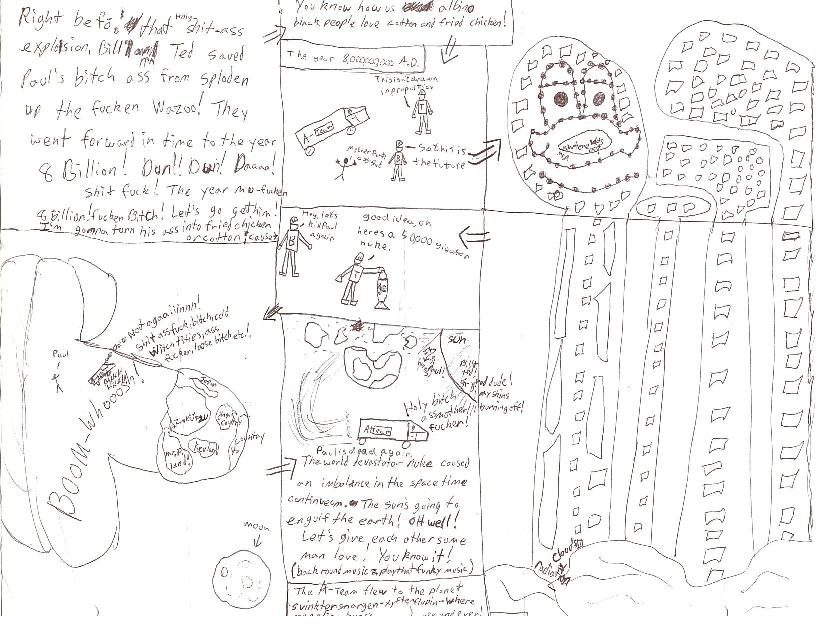 Right befo. that Holy shit-ass
explosion, Bill and Ted saved
Paul's bitch ass from sploden
up the fucken Wazoo! They
went forward in time to the year
8 Billion! Dun!! Dun! Dnano!
shit fuck! The year mo-fucken
8 Billion! fucken Bitch! Let's go get him!
I'm gonna turn his ass into fried chicken
or cotton, 'cause
You know how us albino
black people love cotton and fried chicken!
The year 8,000,000,000 A.D.
This isn't drawn
in proportion
A-Team
So this is
the future
Hey, let's
kill Paul
again
good idea, oh
heres a 50,000 gigaton
nuke.
Not agaaiiinnn!
shit ass fuck, bitch cod
Witch tities, ass
fucken, loose bitch etc!
Paul
Boom-Whooosh!
Country
moon
sun
Holy bitch
ass mother
fucker!
A-Team
dude!
my skins
burning off!
Paul is dead again
The world devastator Nuke caused
an imbalance in the space time
continueum. The sun's going to
engulf the earth! Oh well!
Let's give each other some
man love! You know it!
(back round music & play that funky music)
The A-Team flew to the planet
where
clouds
radiation